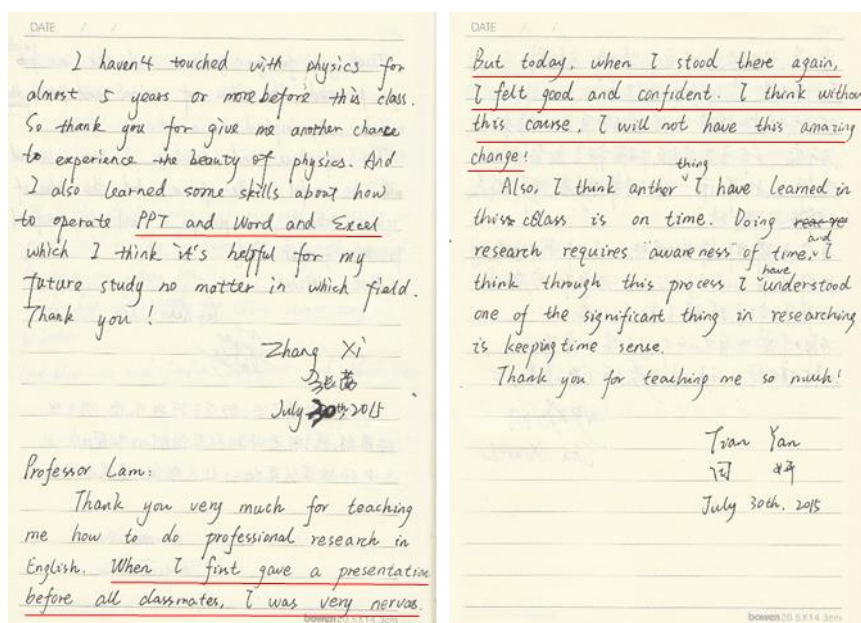 DATE / /
I haven't touched with physics for
almost 5 years or more before this class.
So thank you for give me another chance
to experience the beauty of physics. And
I also learned some skills about how
to operate PPT and Word and Excel
which I think it's helpful for my
future study no matter in which field.
Thank you!
Zhang Xi
July 30th 2015
Professor Lam:
Thank you very much for teaching
me how to do professional research in
English. When I first gave a presentation
before all classmates, I was very nervos.
bowen 20.5X14.3cm
DATE / /
But today, when I stood there again,
I felt good and confident. I think without
this course, I will not have this amazing
change!
Also, I think anther thing I have learned in
this class is on time. Doing
research requires awareness of time, and I
think through this process I have understood
one of the significant thing in researching
is keeping time sense.
Thank you for teaching me so much!
Yan
July 30th, 2015
bowen 20.5X14.3cm